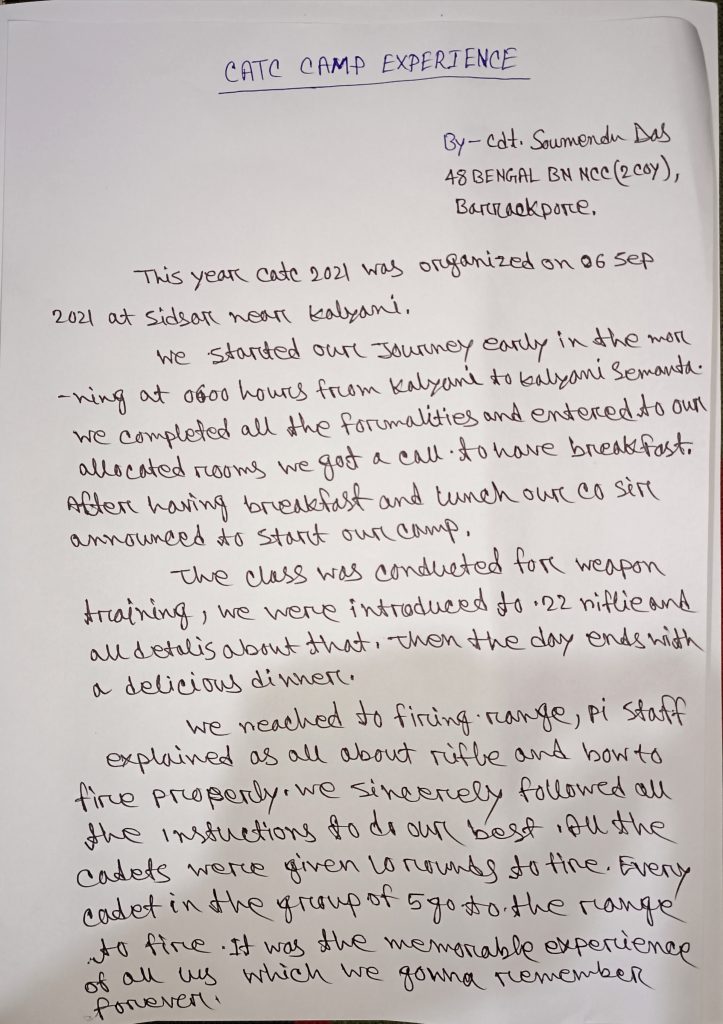 CATC CAMP EXPERIENCE
By - Cdt. Soumendu Das
48 BENGAL BN NCC (2 COY),
Barrackpore.
This year Catc 2021 was organized on 06 Sep
2021 at Sidsar near Kalyani.
We started our Journey early in the mor
-ning at 0600 hours from Kalyani to Kalyani Semanta.
we completed all the formalities and entered to our
allocated rooms we got a call to have breakfast.
After having breakfast and lunch our CO sir
announced to start our camp.
The class was conducted for weapon
training, we were introduced to .22 riflie and
all detalis about that. Then the day ends with
a delicious dinner.
We reached to firing range, pi staff
explained as all about rifle and how to
fire properly. we sincerely followed all
the instuctions to do our best. All the
cadets were given 10 rounds to fire. Every
cadet in the group of 5 go to the range
to fire. It was the memorable experience
of all us which we gonna remember
forever.